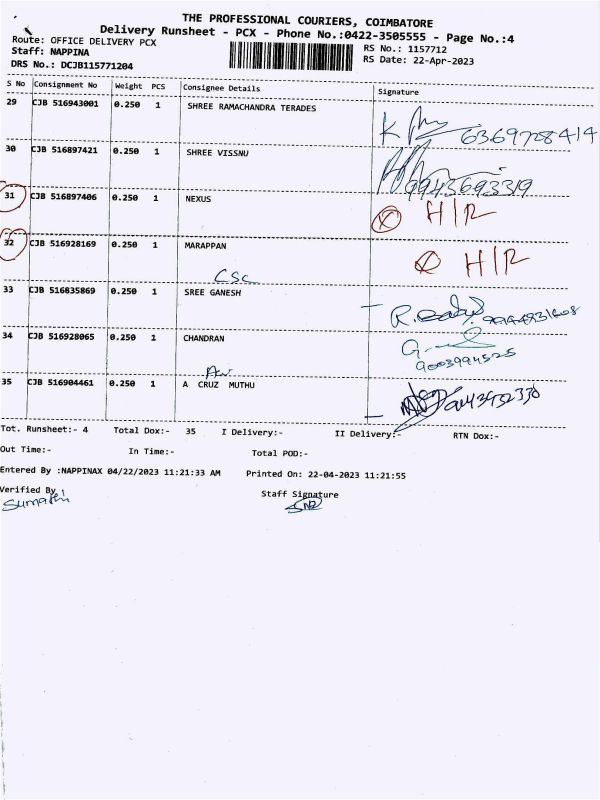 THE PROFESSIONAL COURIERS, COIMBATORE
Delivery Runsheet - PCX - Phone No.:0422-3505555 - Page No.:4
Route: OFFICE DELIVERY PCX
RS No.: 1157712
Staff: NAPPINA
RS Date: 22-Apr-2023
DRS No.: DCJB115771204
S No Consignment No Weight PCS Consignee Details Signature
29 CJB 516943001 0.250 1 SHREE RAMACHANDRA TERADES
6369728414
30 CJB 516897421 0.250 1 SHREE VISSNU
9943693319
31 CJB 516897406 0.250 1 NEXUS H/R
32 CJB 516928169 0.250 1 MARAPPAN H/R
CSC
33 CJB 516835869 0.250 1 SREE GANESH
34 CJB 516928065 0.250 1 CHANDRAN
9003994525
35 CJB 516904461 0.250 1 A CRUZ MUTHU
Tot. Runsheet:- 4 Total Dox:- 35 I Delivery:- II Delivery:- RTN Dox:-
Out Time:- In Time:- Total POD:-
Entered By :NAPPINAX 04/22/2023 11:21:33 AM Printed On: 22-04-2023 11:21:55
Verified By Staff Signature
Sumathi